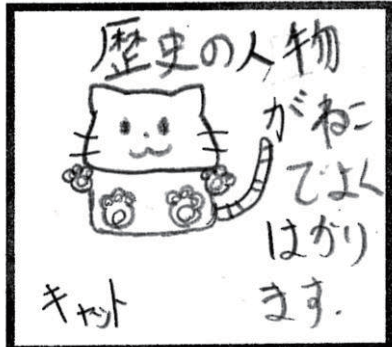 歴史の人物
がねこ
でよく
はかり
ます.
キャット